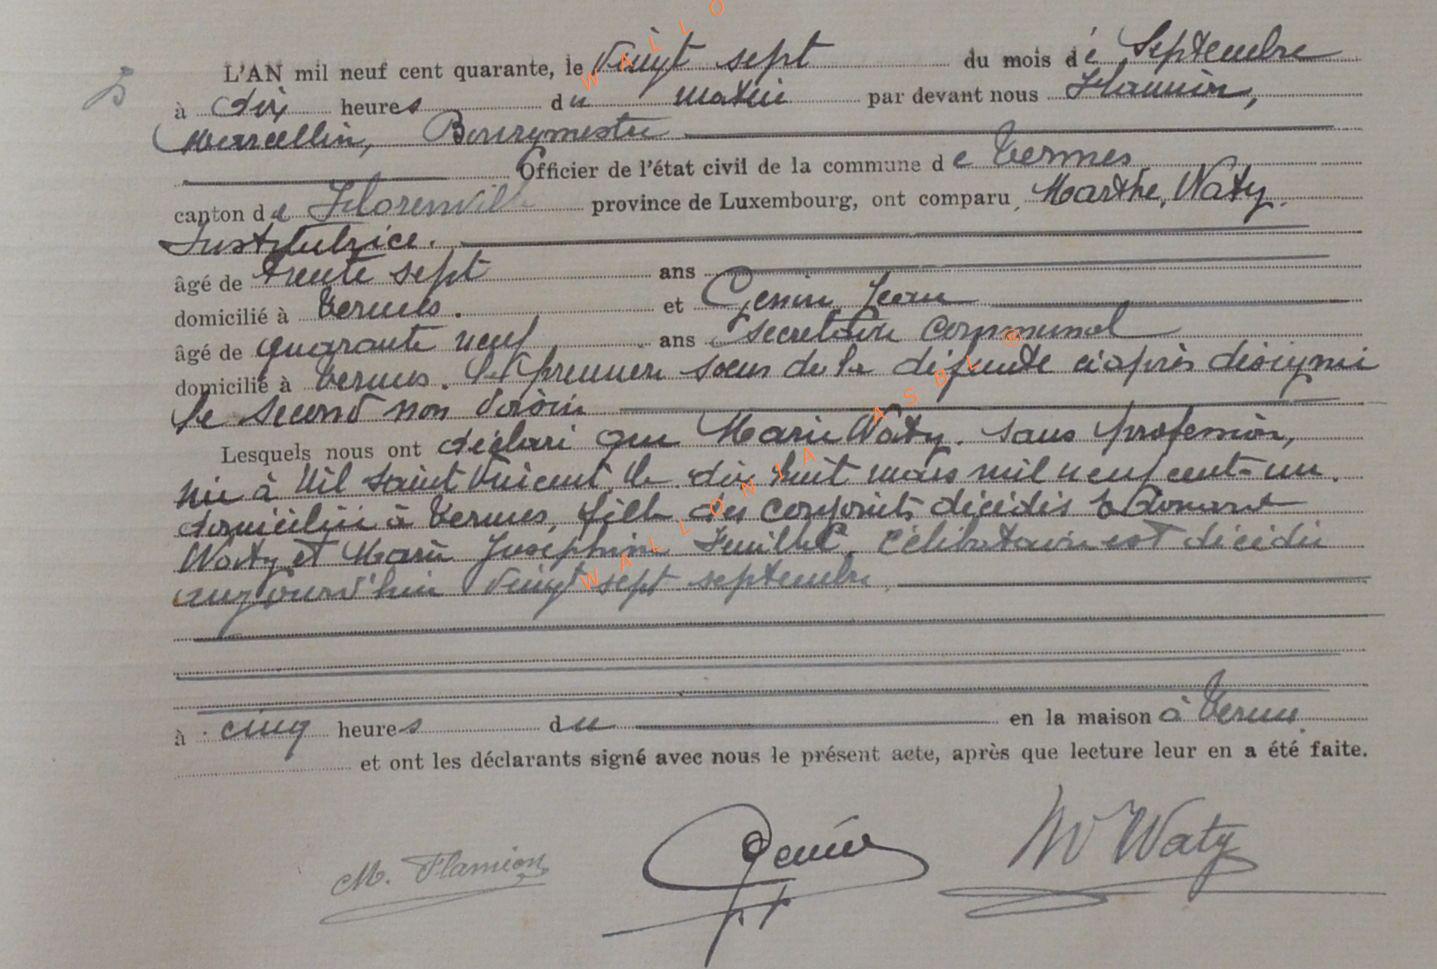 L'AN mil neuf cent quarante, le vingt sept du mois de Septembre
à dix heures du matin par devant nous Flamion,
Marcellin, Bourgmestre
Officier de l'état civil de la commune de Termes
canton de Florenville province de Luxembourg, ont comparu Marthe, Waty.
Institutrice.
âgé de trente sept ans
domicilié à Termes. et Genin Jean
âgé de quarante neuf ans secrétaire communal
domicilié à Termes. la première soeur de la défunte ci après désignée
le second non voisin
Lesquels nous ont déclaré que Marie Waty. sans profession,
née à Nil Saint Vincent, le dix huit mars mil neuf cent un.
domiciliée à Termes, fille des conjoints décédés Edouard
Waty et Marie Joséphine Feuillet. célibataire est décédée
aujourd'hui vingt sept septembre,
à cinq heures du en la maison à Termes
et ont les déclarants signé avec nous le présent acte, après que lecture leur en a été faite.
M. Flamion Genin M Waty
WALLONIA ASBL ©
WALLO